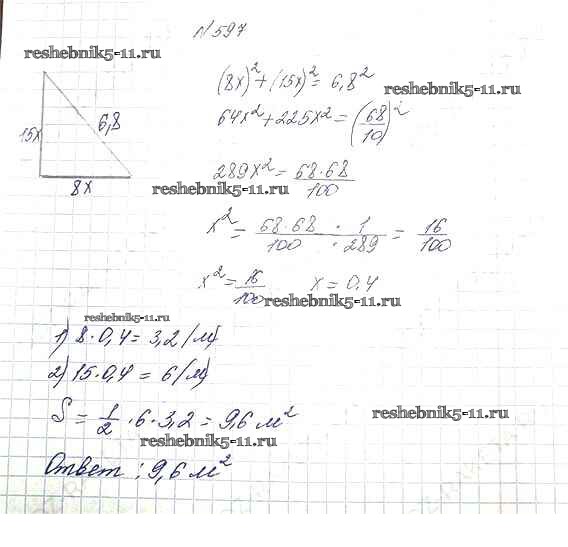 №597
reshebnik5-11.ru
(8x)²+(15x)²= 6,8²
reshebnik5-11.ru
64x²+225x²=(68/10)²
15x
6,8
8x
289x²= 68·68/100
reshebnik5-11.ru
x²= 68·68/100 · 1/289 = 16/100
x²= 16/100 x=0,4
reshebnik5-11.ru
reshebnik5-11.ru
1) 8·0,4= 3,2 (м)
2) 15·0,4 = 6 (м)
S = 1/2 ·6·3,2= 9,6 м²
reshebnik5-11.ru
reshebnik5-11.ru
Ответ: 9,6 м²